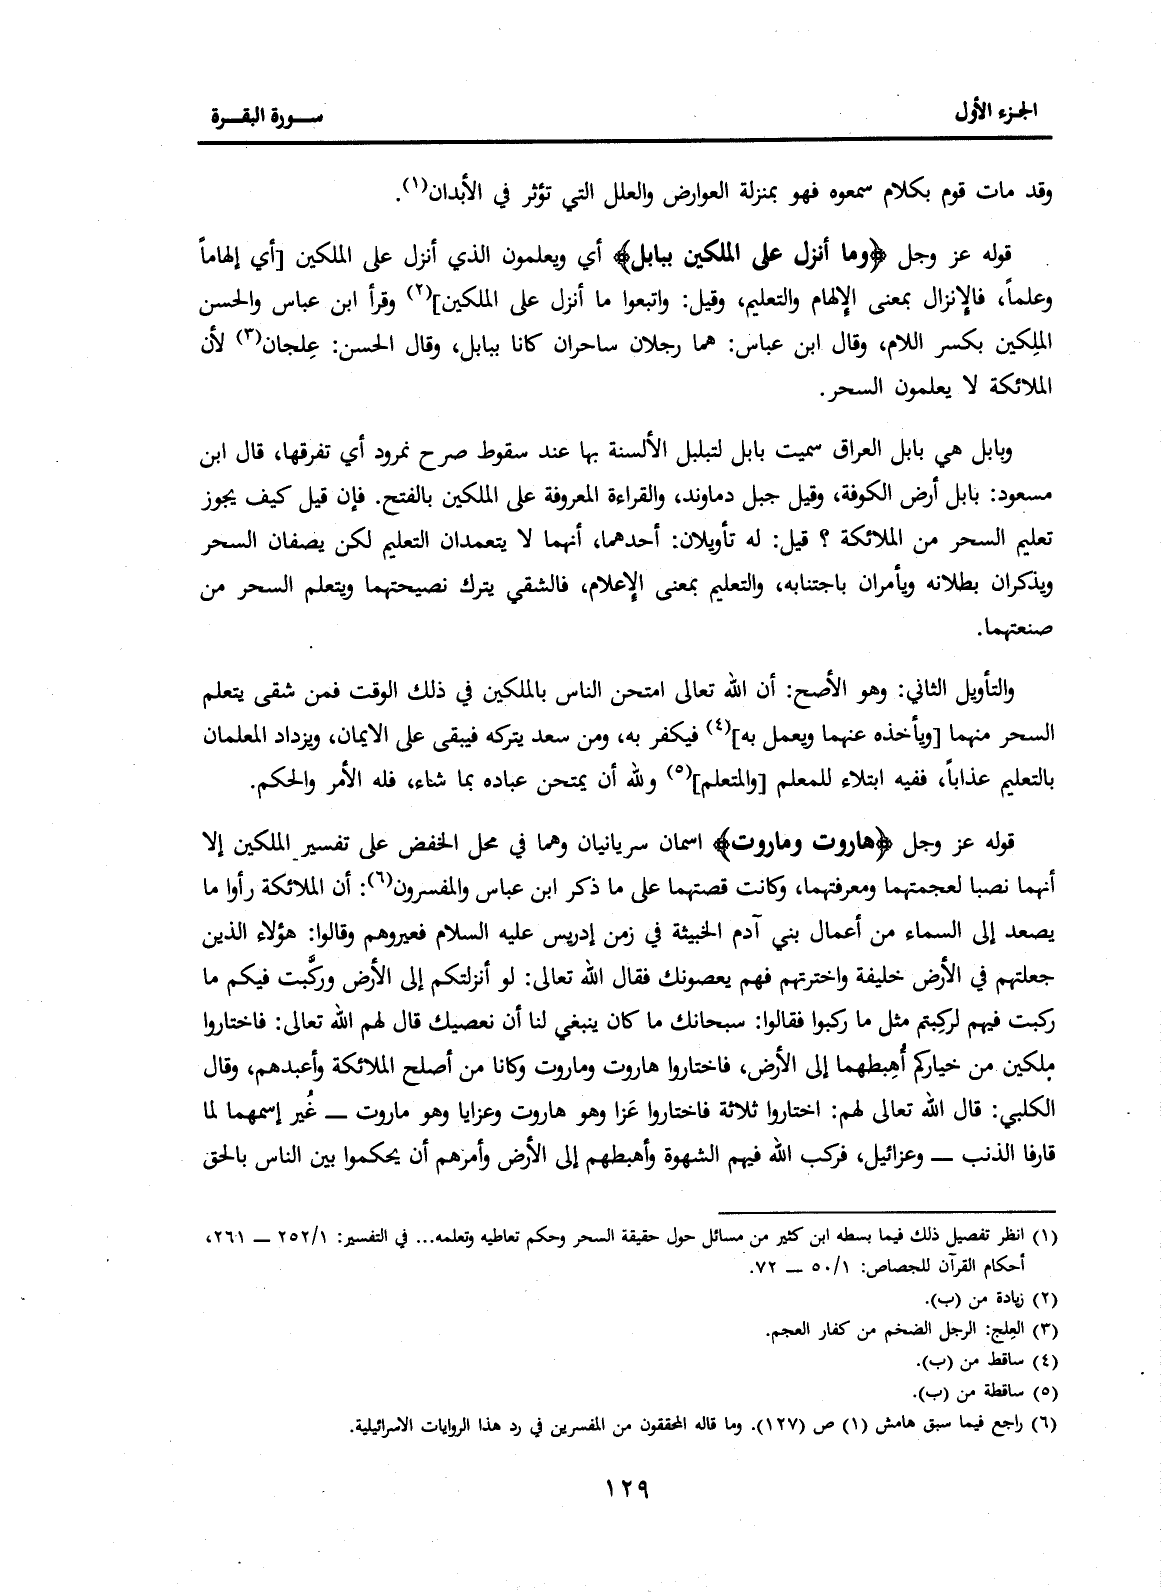 الجزء الأول
سورة البقرة
وقد مات قوم بكلام سمعوه فهو بمنزلة العوارض والعلل التي تؤثر في الأبدان(١).
قوله عز وجل ﴿وما أنزل على الملكين ببابل﴾ أي ويعلمون الذي أنزل على الملكين [أي إلهاماً
وعلماً، فالإنزال بمعنى الإلهام والتعليم، وقيل: واتبعوا ما أنزل على الملكين](٢) وقرأ ابن عباس والحسن
الملِكين بكسر اللام، وقال ابن عباس: هما رجلان ساحران كانا ببابل، وقال الحسن: عِلجان(٣) لأن
الملائكة لا يعلمون السحر.
وبابل هي بابل العراق سميت بابل لتبلبل الألسنة بها عند سقوط صرح نمرود أي تفرقها، قال ابن
مسعود: بابل أرض الكوفة، وقيل جبل دماوند، والقراءة المعروفة على الملكين بالفتح. فإن قيل كيف يجوز
تعليم السحر من الملائكة ؟ قيل: له تأويلان: أحدهما، أنهما لا يتعمدان التعليم لكن يصفان السحر
ويذكران بطلانه ويأمران باجتنابه، والتعليم بمعنى الإعلام، فالشقي يترك نصيحتهما ويتعلم السحر من
صنعتهما.
والتأويل الثاني: وهو الأصح: أن الله تعالى امتحن الناس بالملكين في ذلك الوقت فمن شقى يتعلم
السحر منهما [ويأخذه عنهما ويعمل به](٤) فيكفر به، ومن سعد يتركه فيبقى على الايمان، ويزداد المعلمان
بالتعليم عذاباً، ففيه ابتلاء للمعلم [والمتعلم](٥) ولله أن يمتحن عباده بما شاء، فله الأمر والحكم.
قوله عز وجل ﴿هاروت وماروت﴾ اسمان سريانيان وهما في محل الخفض على تفسير الملكين إلا
أنهما نصبا لعجمتهما ومعرفتهما، وكانت قصتهما على ما ذكر ابن عباس والمفسرون(٦): أن الملائكة رأوا ما
يصعد إلى السماء من أعمال بني آدم الخبيثة في زمن إدريس عليه السلام فعيروهم وقالوا: هؤلاء الذين
جعلتهم في الأرض خليفة واخترتهم فهم يعصونك فقال الله تعالى: لو أنزلتكم إلى الأرض وركَّبت فيكم ما
ركبت فيهم لركبتم مثل ما ركبوا فقالوا: سبحانك ما كان ينبغي لنا أن نعصيك قال لهم الله تعالى: فاختاروا
ملكين من خياركم أُهبطهما إلى الأرض، فاختاروا هاروت وماروت وكانا من أصلح الملائكة وأعبدهم، وقال
الكلبي: قال الله تعالى لهم: اختاروا ثلاثة فاختاروا عَزا وهو هاروت وعزايا وهو ماروت ــ غُير إسمهما لما
قارفا الذنب ــ وعزائيل، فركب الله فيهم الشهوة وأهبطهم إلى الأرض وأمرهم أن يحكموا بين الناس بالحق
(١) انظر تفصيل ذلك فيما بسطه ابن كثير من مسائل حول حقيقة السحر وحكم تعاطيه وتعلمه... في التفسير: ٢٥٢/١ ــ ٢٦١،
أحكام القرآن للجصاص: ٥٠/١ ــ ٧٢.
(٢) زيادة من (ب).
(٣) العِلج: الرجل الضخم من كفار العجم.
(٤) ساقط من (ب).
(٥) ساقطة من (ب).
(٦) راجع فيما سبق هامش (١) ص (١٢٧). وما قاله المحققون من المفسرين في رد هذا الروايات الاسرائيلية.
١٢٩